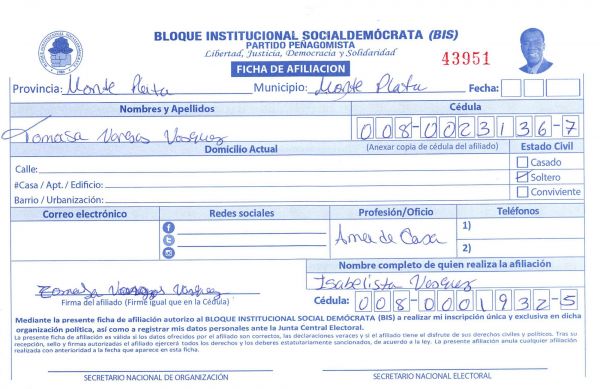 BLOQUE INSTITUCIONAL SOCIALDEMÓCRATA (BIS)
PARTIDO PEÑAGOMISTA
Libertad, Justicia, Democracia y Solidaridad
43951
FICHA DE AFILIACION
Provincia: Monte Plata Municipio: Monte Plata Fecha:
Nombres y Apellidos Cédula
Tomasa Vargas Vasquez 008-0023136-7
Domicilio Actual (Anexar copia de cédula del afiliado) Estado Civil
Calle: Casado
#Casa / Apt. / Edificio: Soltero
Barrio / Urbanización: Conviviente
Correo electrónico Redes sociales Profesión/Oficio Teléfonos
Ama de Casa 1)
2)
Nombre completo de quien realiza la afiliación
Tomasa Vasquez Isabelista Vasquez
Firma del afiliado (Firme igual que en la Cédula) Cédula: 008-0001932-5
Mediante la presente ficha de afiliación autorizo al BLOQUE INSTITUCIONAL SOCIAL DEMÓCRATA (BIS) a realizar mi inscripción única y exclusiva en dicha
organización política, así como a registrar mis datos personales ante la Junta Central Electoral.
La presente ficha de afiliación es válida si los datos ofrecidos por el afiliado son correctos, las declaraciones veraces y si este tiene el disfrute de sus derechos civiles y políticos. Tras su
recepción, sello y firma autorizados el afiliado ejercerá todos los derechos y los deberes estatutariamente sancionados, de acuerdo a la ley. La presente afiliación anula cualquier afiliación
realizada con anterioridad a la fecha que aparece en esta ficha.
SECRETARIO NACIONAL DE ORGANIZACIÓN SECRETARIO NACIONAL ELECTORAL